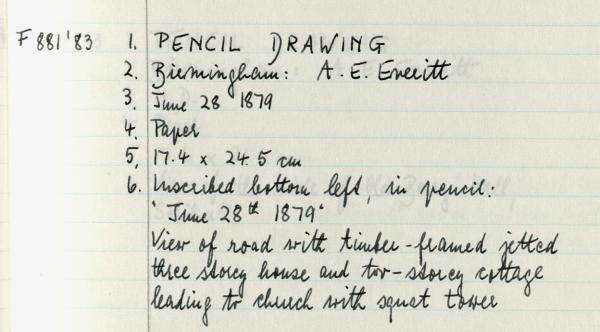 F 881'83 1. PENCIL DRAWING
2. Birmingham: A. E. Everitt
3. June 28 1879
4. Paper
5. 17.4 x 24.5 cm
6. Inscribed bottom left, in pencil:
'June 28th 1879'
View of road with timber-framed jetted
three storey house and two-storey cottage
leading to church with squat tower